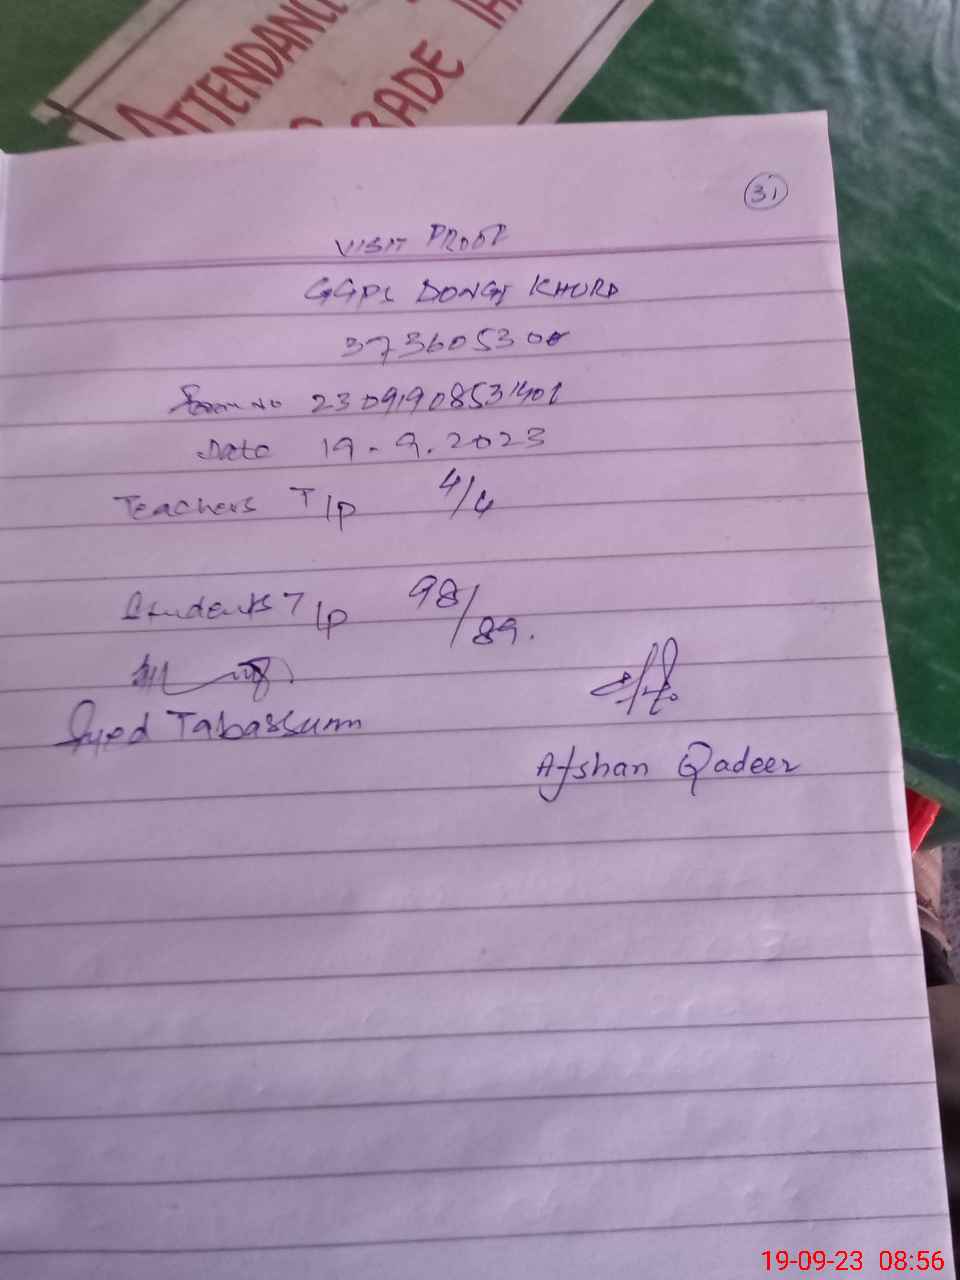 ATTENDANC
RADE
31
VISIT PROOF
GGPS DONGI KHURD
37360530
No 23091908531401
Date 19-9.2023
Teachers T/P 4/4
Students T/P 98/89.
Syed Tabassum
Afshan Qadeer
19-09-23 08:56